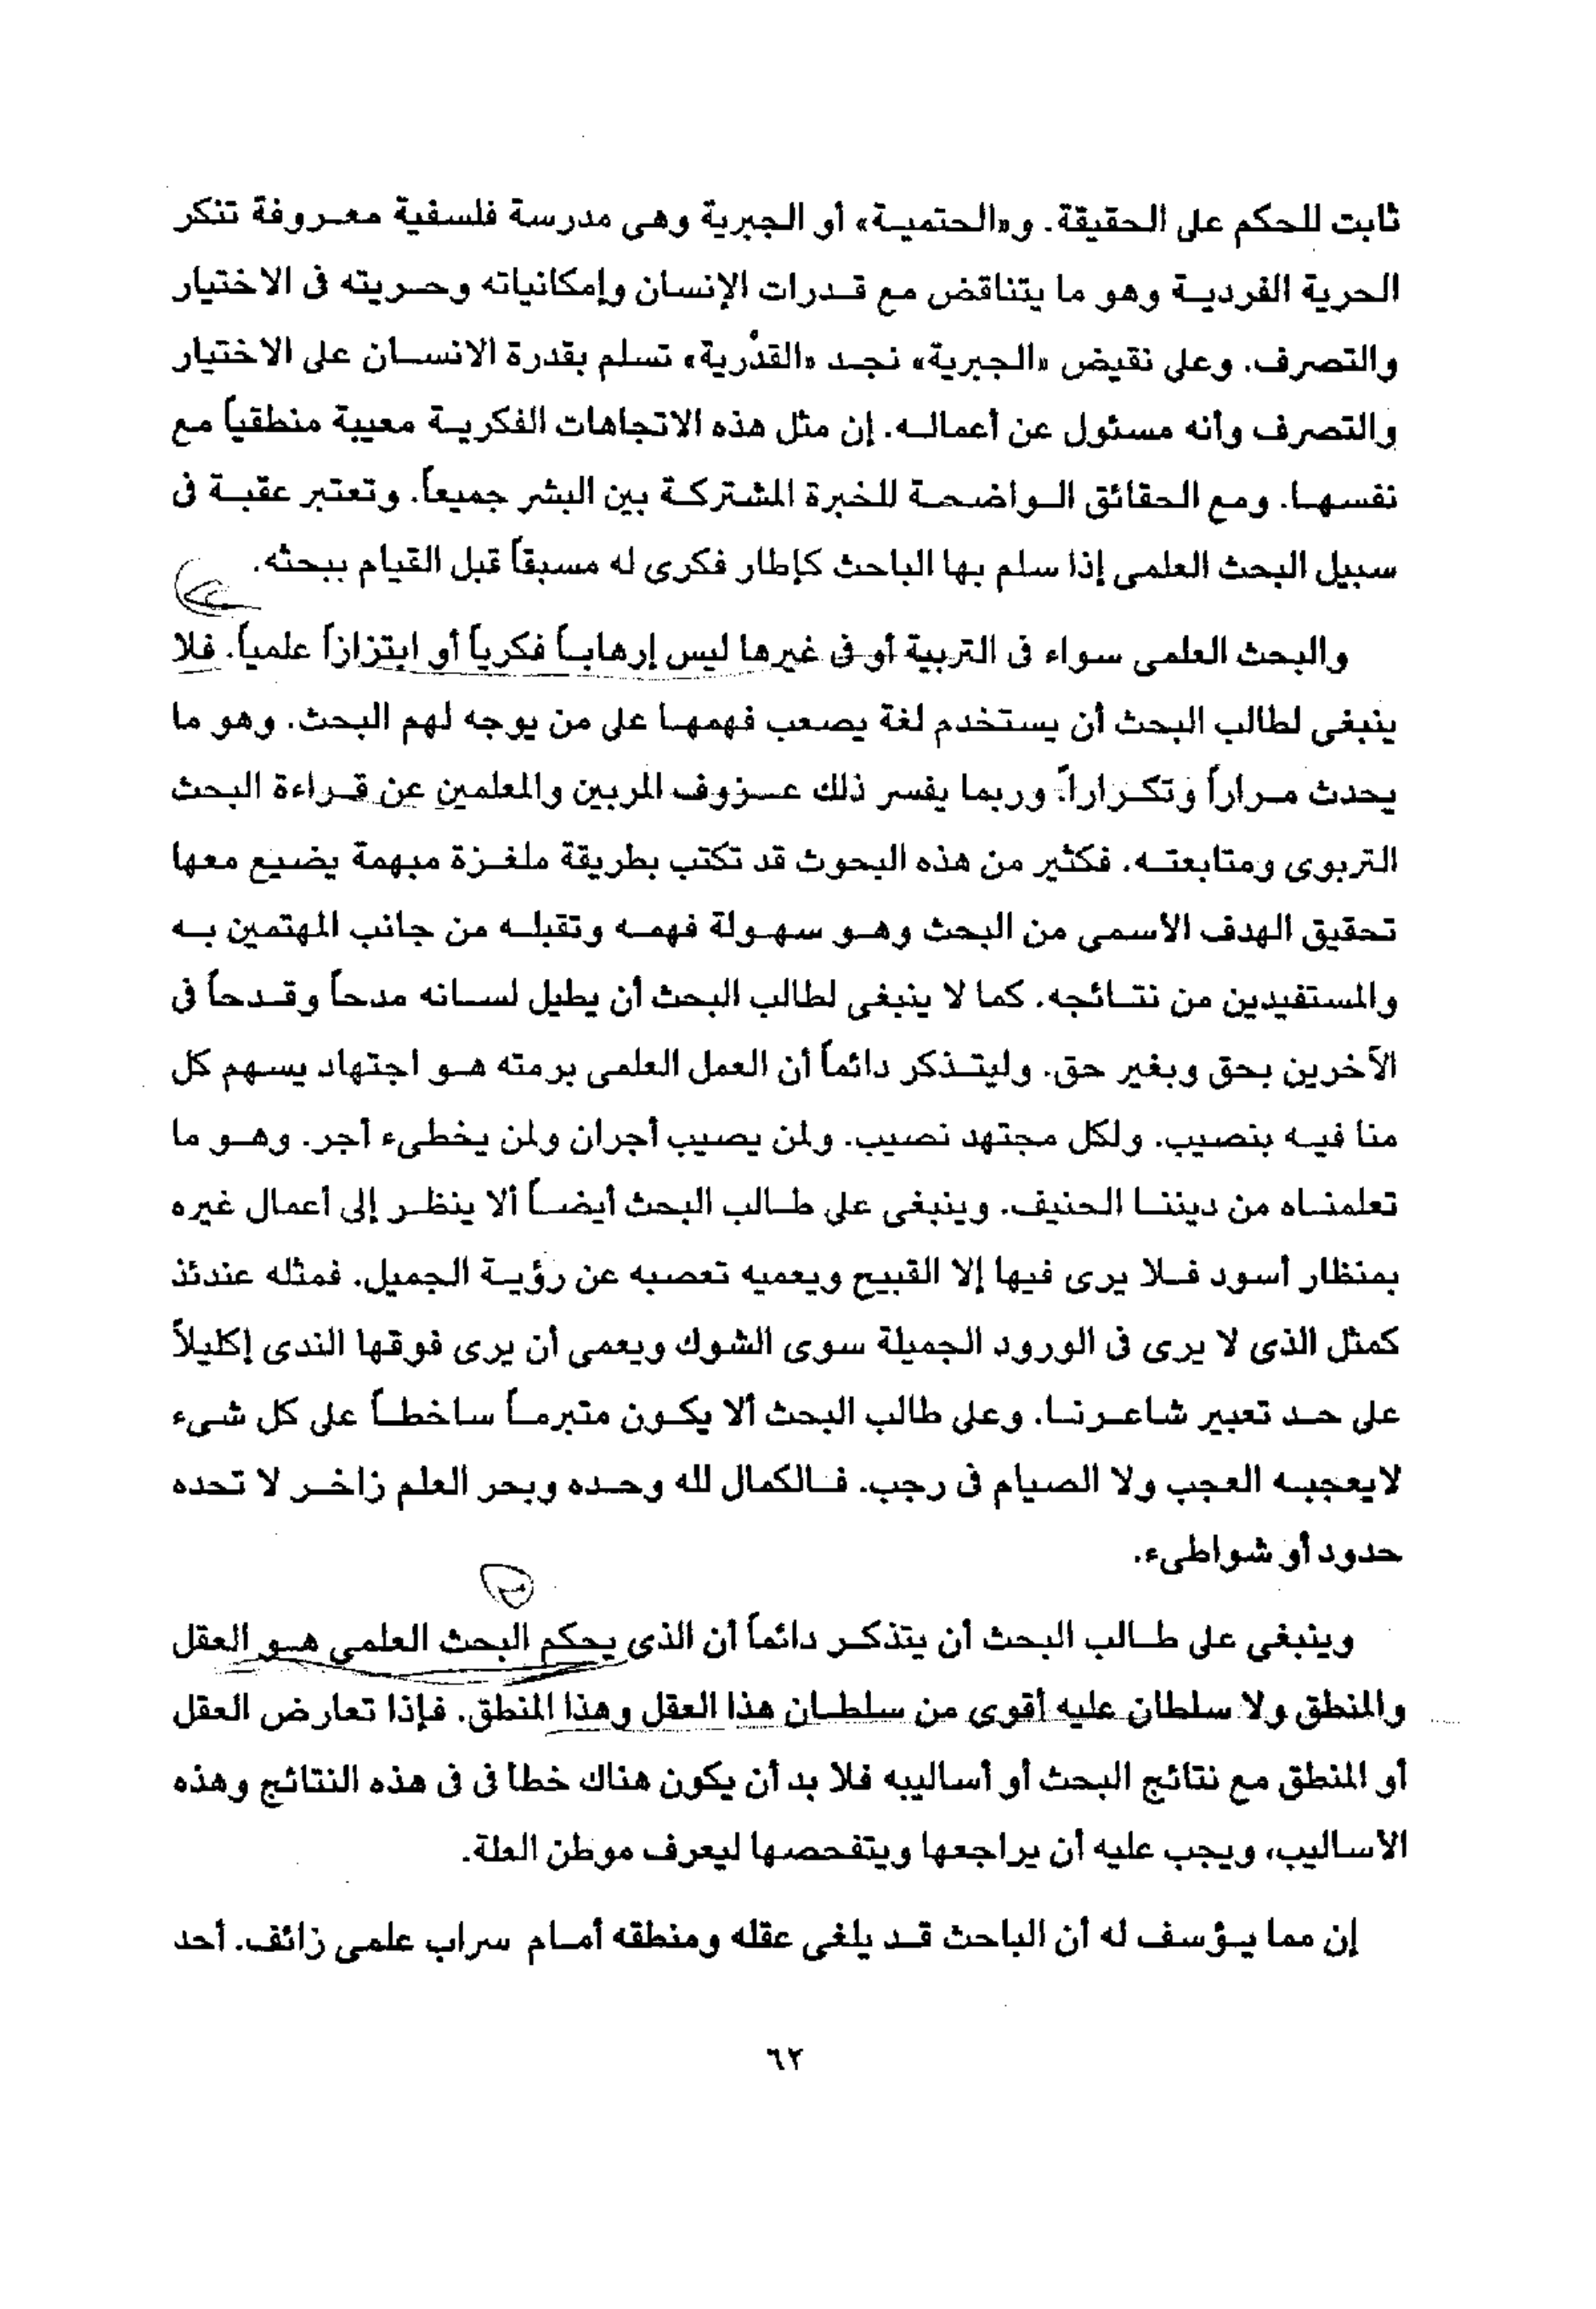 ثابت للحكم على الحقيقة. و«الحتمية» أو الجبرية وهى مدرسة فلسفية معروفة تنكر
الحرية الفردية وهو ما يتناقض مع قدرات الإنسان وإمكانياته وحريته فى الاختيار
والتصرف. وعلى نقيض «الجبرية» نجد «القدْرية» تسلم بقدرة الانسان على الاختيار
والتصرف وأنه مسئول عن أعماله. إن مثل هذه الاتجاهات الفكرية معيبة منطقياً مع
نفسها. ومع الحقائق الواضحة للخبرة المشتركة بين البشر جميعاً. وتعتبر عقبة فى
سبيل البحث العلمى إذا سلم بها الباحث كإطار فكرى له مسبقاً قبل القيام ببحثه.
والبحث العلمى سواء فى التربية أو فى غيرها ليس إرهاباً فكرياً أو ابتزازاً علمياً. فلا
ينبغى لطالب البحث أن يستخدم لغة يصعب فهمها على من يوجه لهم البحث. وهو ما
يحدث مراراً وتكراراً. وربما يفسر ذلك عزوف المربين والمعلمين عن قراءة البحث
التربوى ومتابعته. فكثير من هذه البحوث قد تكتب بطريقة ملغزة مبهمة يضيع معها
تحقيق الهدف الأسمى من البحث وهو سهولة فهمه وتقبله من جانب المهتمين به
والمستفيدين من نتائجه. كما لا ينبغى لطالب البحث أن يطيل لسانه مدحاً وقدحاً فى
الآخرين بحق وبغير حق. وليتذكر دائماً أن العمل العلمى برمته هو اجتهاد يسهم كل
منا فيه بنصيب. ولكل مجتهد نصيب. ولمن يصيب أجران ولمن يخطىء أجر. وهو ما
تعلمناه من ديننا الحنيف. وينبغى على طالب البحث أيضاً ألا ينظر إلى أعمال غيره
بمنظار أسود فلا يرى فيها إلا القبيح ويعميه تعصبه عن رؤية الجميل. فمثله عندئذ
كمثل الذى لا يرى فى الورود الجميلة سوى الشوك ويعمى أن يرى فوقها الندى إكليلاً
على حد تعبير شاعرنا. وعلى طالب البحث ألا يكون متبرماً ساخطاً على كل شىء
لايعجبه العجب ولا الصيام فى رجب. فالكمال لله وحده وبحر العلم زاخر لا تحده
حدود أو شواطىء.
وينبغى على طالب البحث أن يتذكر دائماً أن الذى يحكم البحث العلمى هو العقل
والمنطق ولا سلطان عليه أقوى من سلطان هذا العقل وهذا المنطق. فإذا تعارض العقل
أو المنطق مع نتائج البحث أو أساليبه فلا بد أن يكون هناك خطأ فى فى هذه النتائج وهذه
الأساليب، ويجب عليه أن يراجعها ويتفحصها ليعرف موطن العلة.
إن مما يؤسف له أن الباحث قد يلغى عقله ومنطقه أمام سراب علمى زائف. أحد
٦٢